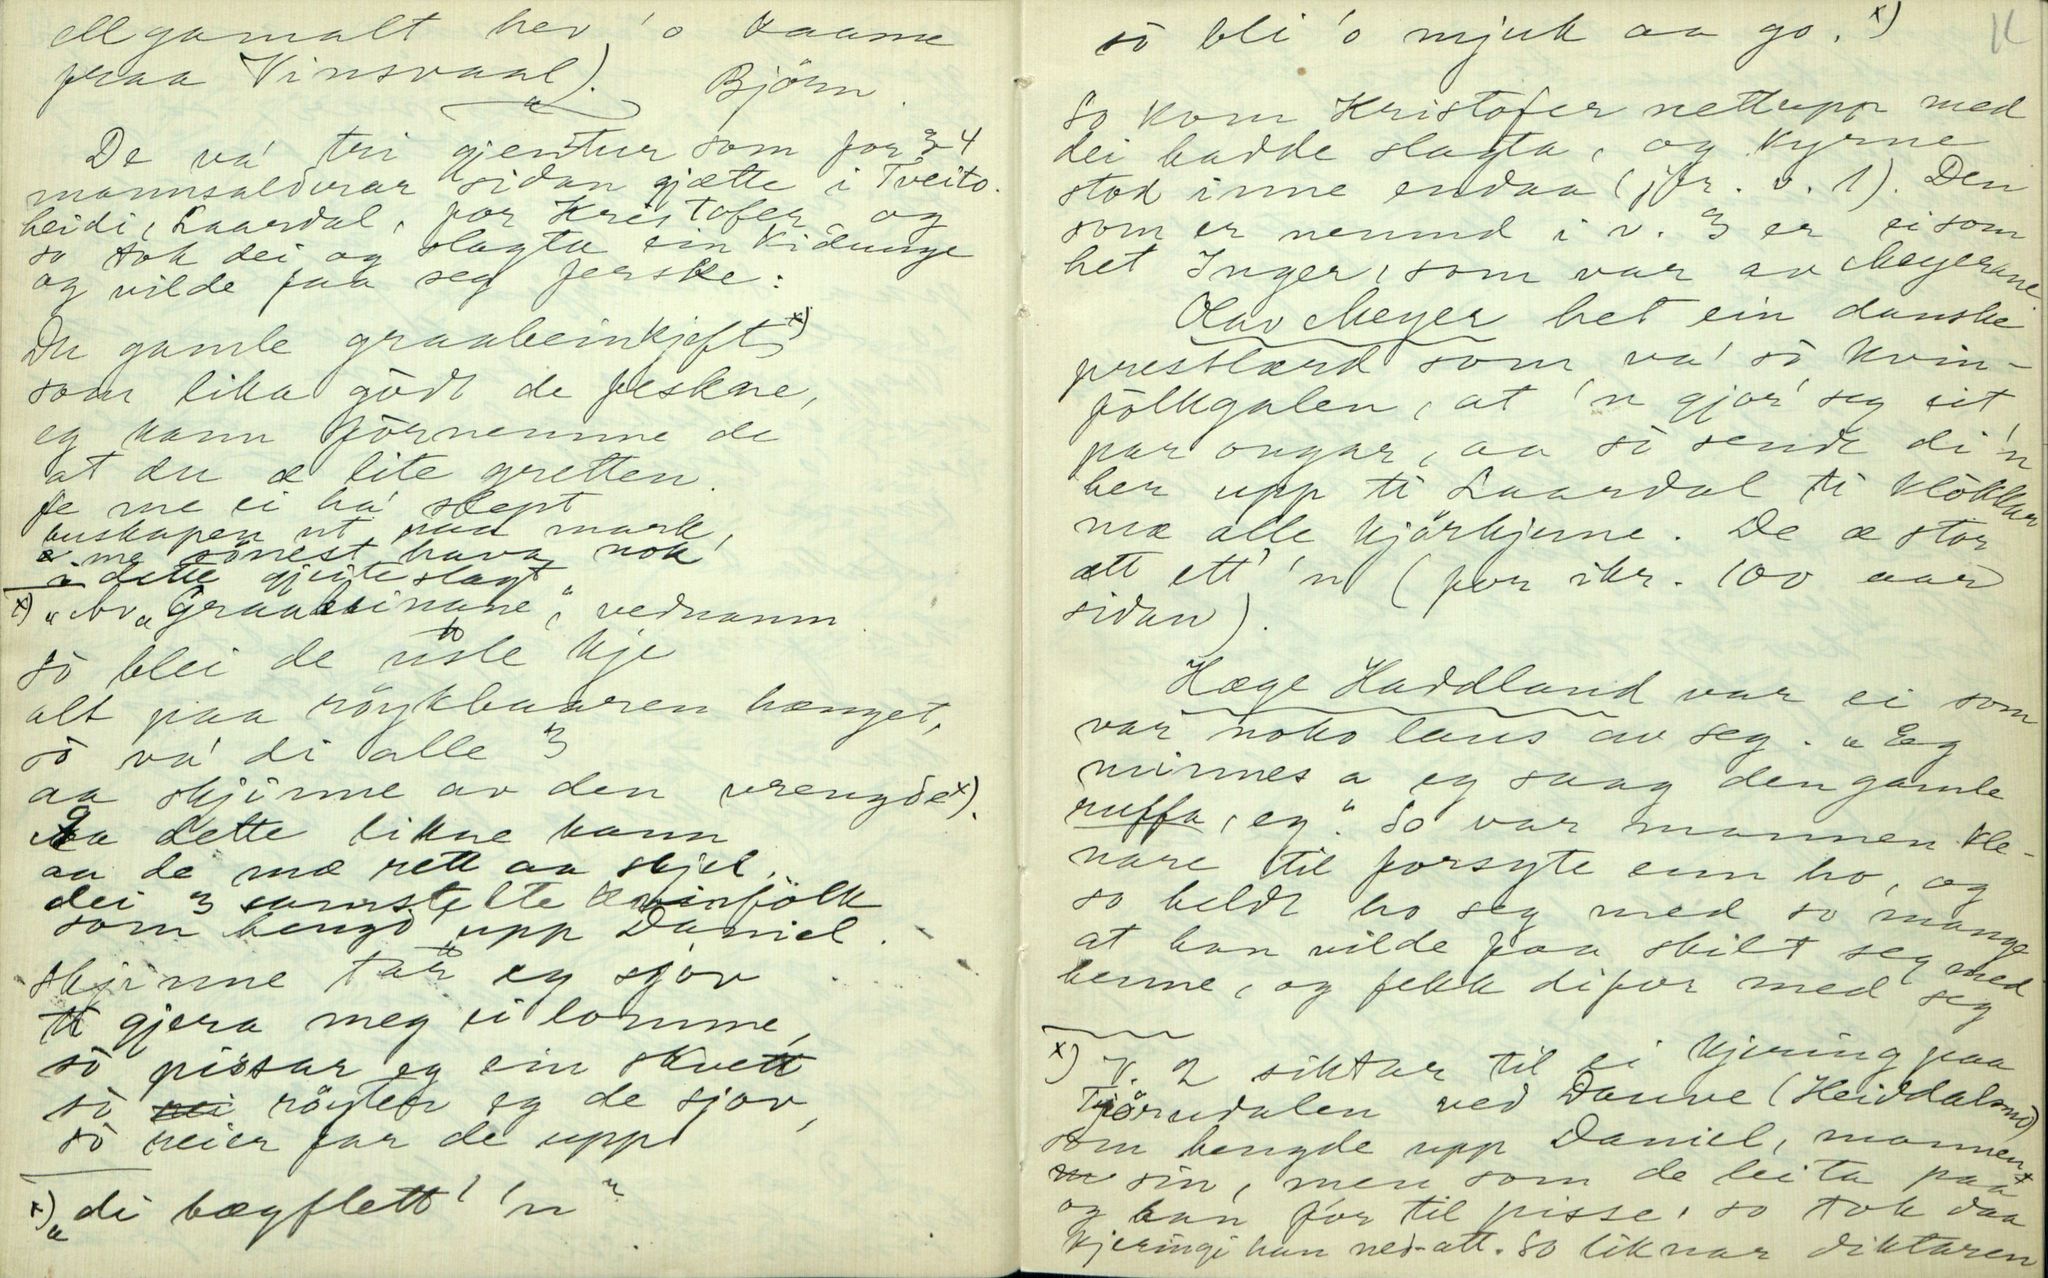 ellgamalt hev 'o kaame
fraa Vinsvaal). Bjørn.
De va' tri gjentur som for 3-4
mannsaldrar sidan gjætte i Tveito-
heidi, Laardal, for Kristofer, og
so tok dei og slagta ein kidunge
og vilde faa seg ferske:
Du gamle graabeinkjeft x)
som lika gödt de feskne,
eg kann förnemme de
at du æ lite gretten.
Fe me ei ha' slept
buskapen ut paa mark,
me sönest hava nok
i dette gjeiteslagt
x) "Av "Graabeinane", vednamn
Sö blei de usle kje
alt paa röykbaaren hænget,
sö va' di alle 3
aa skjinne av den vrengde x).
Eg dette likne kann
aa de mæ rett aa skjel,
dei 3 samstelte kvinfölk
som hengd' upp Daniel.
Skjinne tar eg sjov
ti gjera meg ei lomme,
sö pissar eg ein skvett
sö röyter eg de sjov,
sö reier far de upp
x) "di bægflett' 'n"
sö bli 'o mjuk aa go. x)
So kom Kristofer nettupp med
dei hadde slagta, og kyrne
stod inne endaa (jfr. v. 1). Den
som er nemnd i v. 3 er ei som
het Inger, som var av Meyerane
Olav Meyer het ein danske
prestlærd som va' sö kvin-
fölkgalen, at 'n gjor' seg eit
par ongar, aa sö sendt di 'n
her upp ti Laardal ti klökkar
mæ alle kjörkjune. De æ stor
ætt ett' 'n (for ikr. 100 aar
sidan).
Hæge Haddland var ei som
var noko laus av seg. "Eg
minnes a eg saag den gamle
ruffa, eg." So var mannen kle-
nare til forsyte enn ho, og
so heldt ho seg med so mange
at han vilde faa skilt seg med
henne, og fekk difor med seg
x) V. 2 siktar til ei kjering paa
Tjörndalen ved Dauve (Heiddalsmo)
som hengde upp Daniel, mannen
sin, men som de leita paa
og han för til pisse, so tok daa
kjeringi han ned-att. So liknar diktaren